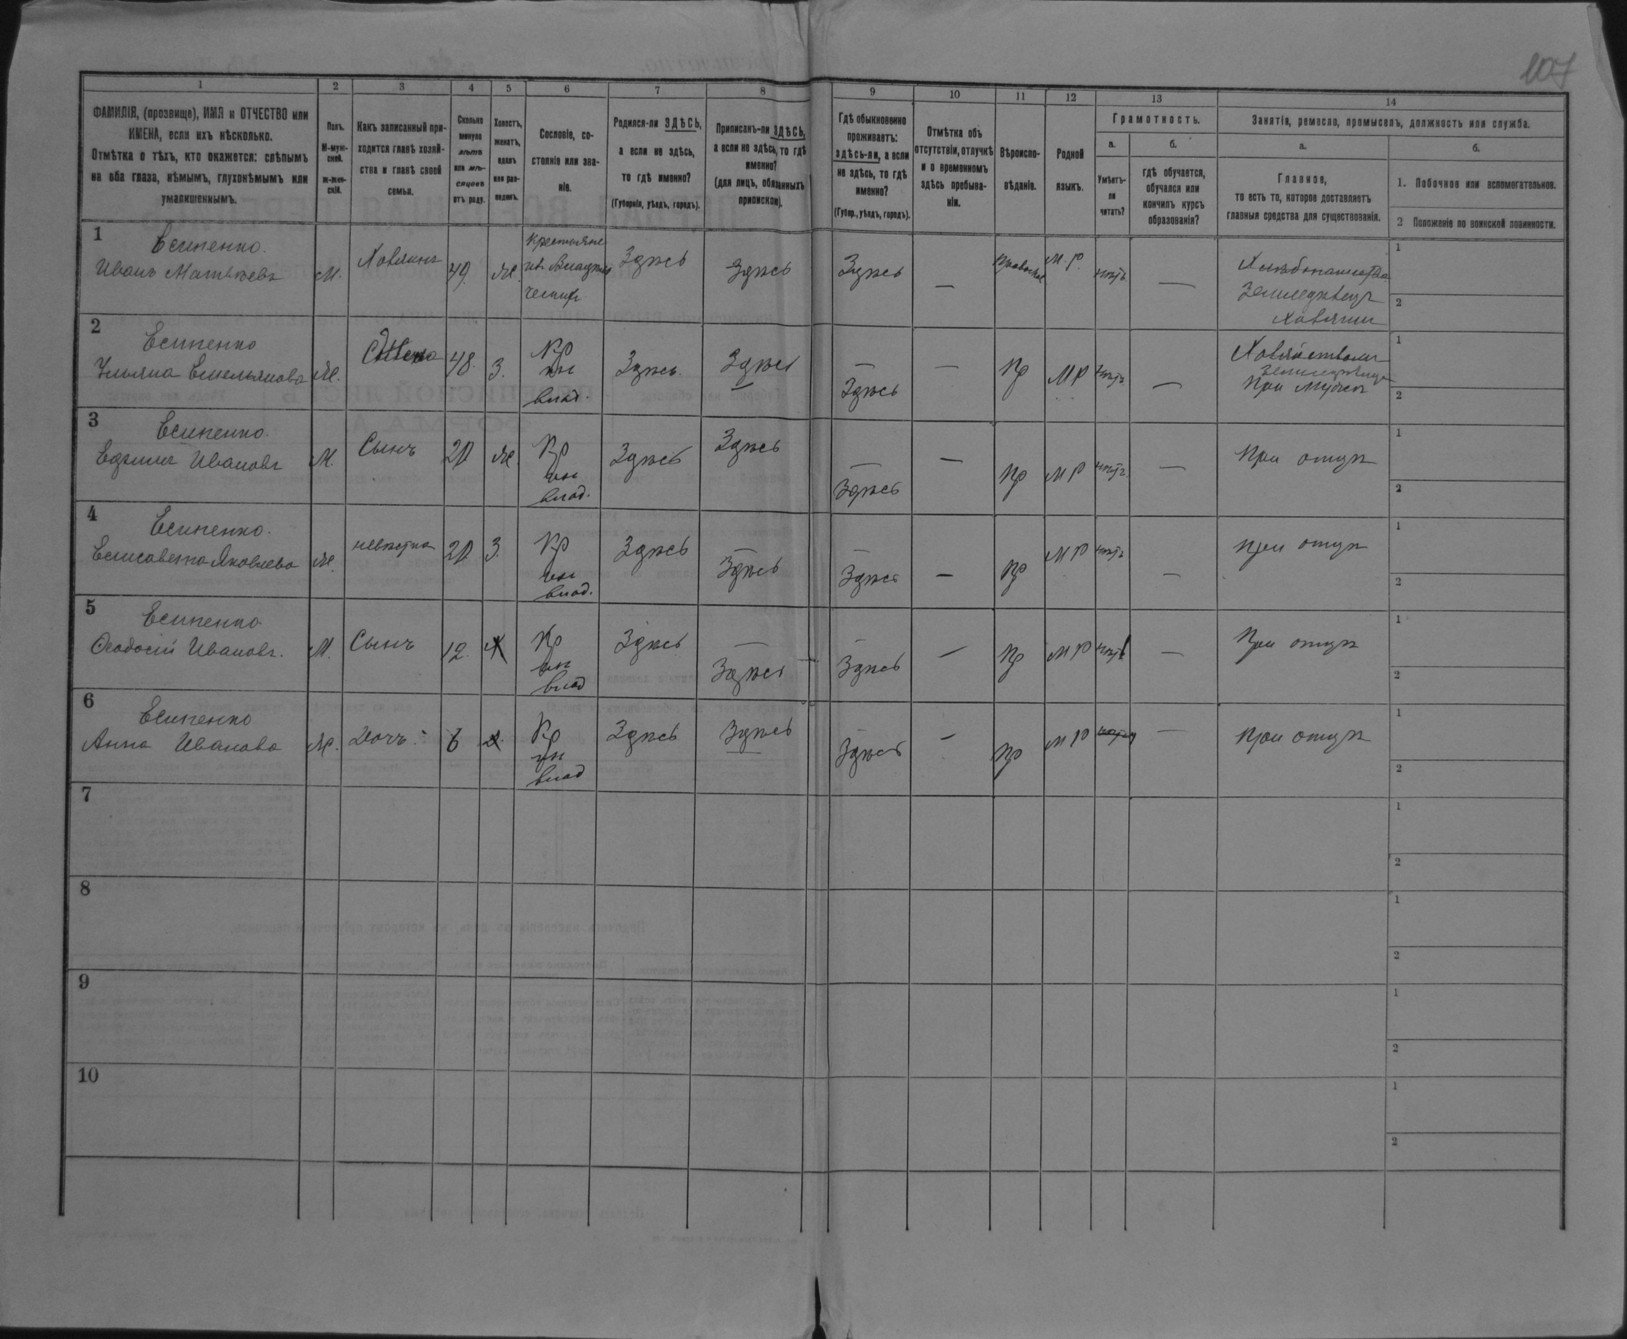 107
1 2 3 4 5 6 7 8 9 10 11 12 13 14
ФАМИЛІЯ, (прозвище), ИМЯ и ОТЧЕСТВО или
ИМЕНА, если ихъ нѣсколько.
Отмѣтка о тѣхъ, кто окажется: слѣпымъ
на оба глаза, нѣмымъ, глухонѣмымъ или
умалишеннымъ.
Полъ.
М-муж-
ской.
ж-жен-
скій.
Какъ записанный при-
ходится главѣ хозяй-
ства и главѣ своей
семьи.
Сколько
минуло
лѣтъ
или мѣ-
сяцевъ
отъ роду.
Холостъ,
женатъ,
вдовъ
или раз-
веденъ.
Сословіе, со-
стояніе или зва-
ніе.
Родился-ли ЗДѢСЬ,
а если не здѣсь,
то гдѣ именно?
(Губернія, уѣздъ, городъ).
Приписанъ-ли ЗДѢСЬ,
а если не здѣсь, то гдѣ
именно?
(для лицъ, обязанныхъ
припиской).
Гдѣ обыкновенно
проживаетъ:
здѣсь-ли, а если
не здѣсь, то гдѣ
именно?
(Губер., уѣздъ, городъ).
Отмѣтка объ
отсутствіи, отлучкѣ
и о временномъ
здѣсь пребыва-
ніи.
Вѣроиспо-
вѣданіе.
Родной
языкъ.
Грамотность.
а.
Умѣетъ-
ли
читать?
б.
гдѣ обучается,
обучался или
кончилъ курсъ
образованія?
Занятія, ремесло, промыселъ, должность или служба.
а.
Главное,
то есть то, которое доставляетъ
главныя средства для существованія.
б.
1. Побочное или вспомогательное.
2 Положеніе по воинской повинности.
1
Есипенко
Иванъ Матвѣевъ М. 49. Здѣсь Здѣсь Здѣсь — М.Р. нѣтъ —
1
2
2
Есипенко
Ульяна Емельянова 48. З. Кр Здѣсь Здѣсь Здѣсь — Пр МР нѣтъ —
1
2
3
Есипенко
Иванова М. Сынъ 20 Кр Здѣсь Здѣсь Здѣсь — Пр МР нѣтъ — При отцѣ
1
2
4
Есипенко
Елисавета Яковлева невѣстка 20 З. Кр Здѣсь Здѣсь Здѣсь — Пр МР нѣтъ — При отцѣ
1
2
5
Есипенко
Ѳеодосій Ивановъ. М. Сынъ 12. Кр Здѣсь Здѣсь Здѣсь — Пр МР — При отцѣ
1
2
6
Есипенко
Анна Иванова Дочь 6 Кр Здѣсь Здѣсь Здѣсь — Пр МР — При отцѣ
1
2
7
1
2
8
1
2
9
1
2
10
1
2